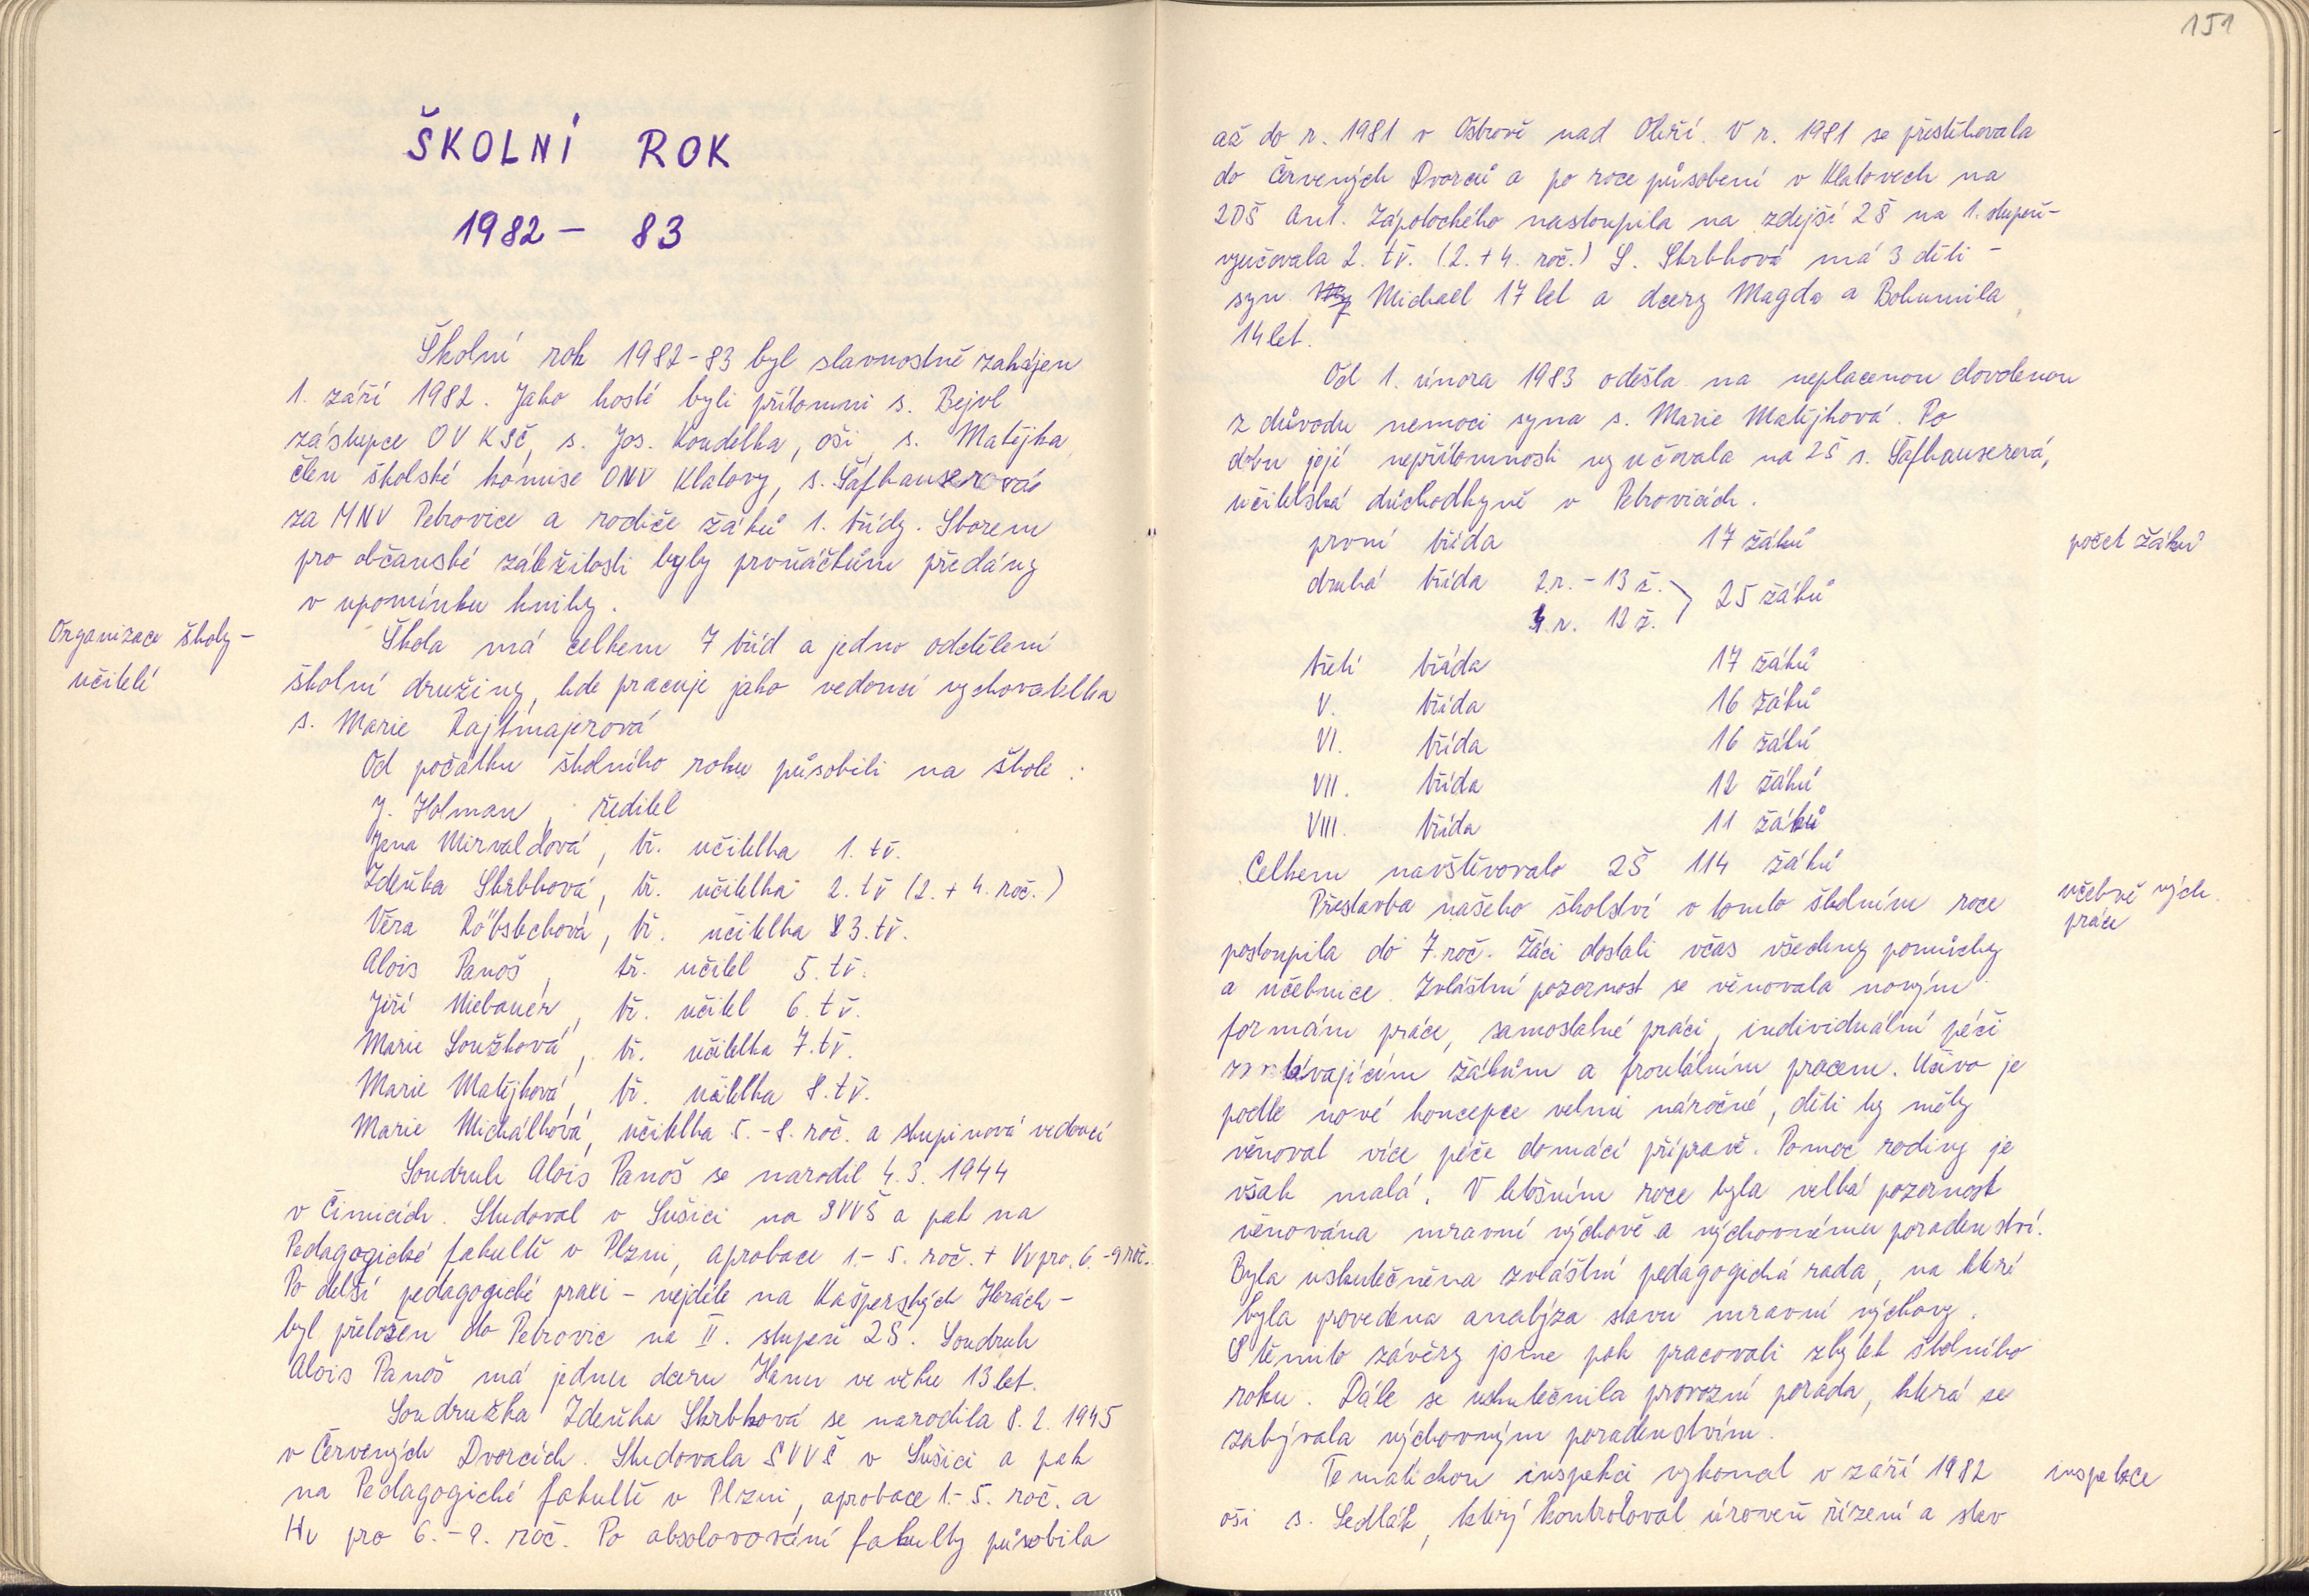 ŠKOLNÍ ROK
1982 - 83
Školní rok 1982-83 byl slavnostně zahájen
1. září 1982. Jako hosté byli přítomni s. Bejvl
zástupce OV KSČ, s. Jos. Koudelka, oši, s. Matějka
člen školské komise ONV Klatovy, s. Šafhauserová
za MNV Petrovice a rodiče žáků 1. třídy. Sborem
pro občanské záležitosti byly prvňáčkům předány
v upomínku knihy.
Organizace školy -
učitelé
Škola má celkem 7 tříd a jedno oddělení
školní družiny, kde pracuje jako vedoucí vychovatelka
s. Marie Rajtmajerová
Od počátku školního roku působili na škole:
J. Holman, ředitel
Jana Mirvaldová, tř. učitelka 1. tř.
Zdeňka Skrbková, tř. učitelka 2. tř (2. + 4. roč.)
Věra Röbstechová, tř. učitelka 3. tř.
Alois Panoš, tř. učitel 5. tř.
Jiří Niebauer, tř. učitel 6. tř.
Marie Loužková, tř. učitelka 7. tř.
Marie Matějková, tř. učitelka 8. tř.
Marie Michálková, učitelka 5.-8. roč. a skupinová vedoucí
Soudruh Alois Panoš se narodil 4. 3. 1944
v Čimicích. Studoval v Sušici na SVVŠ a pak na
Pedagogické fakultě v Plzni, aprobace 1.-5. roč. + Vv pro 6.-9 roč.
Po delší pedagogické praxi - nejdéle na Kašperských Horách -
byl přeložen do Petrovic na II. stupeň ZŠ. Soudruh
Alois Panoš má jednu dceru Hanu ve věku 13 let.
Soudružka Zdeňka Skrbková se narodila 8. 2. 1945
v Červených Dvorcích. Studovala SVVŠ v Sušici a pak
na Pedagogické fakultě v Plzni, aprobace 1.-5. roč. a
Hv pro 6.-9. roč. Po absolovování fakulty působila
151
až do r. 1981 v Ostrově nad Ohří. V r. 1981 se přestěhovala
do Červených Dvorců a po roce působení v Klatovech na
ZDŠ Ant. Zápotockého nastoupila na zdejší ZŠ na 1. stupeň -
vyučovala 2. tř. (2. + 4. roč.) S. Skrbková má 3 děti -
syn Michael 17 let a dcery Magda a Bohumila
14 let.
Od 1. února 1983 odešla na neplacenou dovolenou
z důvodu nemoci syna s. Marie Matějková. Po
dobu její nepřítomnosti vyučovala na ZŠ s. Šafhauserová,
učitelská důchodkyně v Petrovicích.
počet žáků
první třída 17 žáků
druhá třída 2.r. - 13 ž. 25 žáků
4.r. 12 ž.
třetí třída 17 žáků
V. třída 16 žáků
VI. třída 16 žáků
VII. třída 12 žáků
VIII. třída 11 žáků
Celkem navštěvovalo ZŠ 114 žáků
učebně vých.
práce
Přestavba našeho školství v tomto školním roce
postoupila do 7. roč. Žáci dostali včas všechny pomůcky
a učebnice. Zvláštní pozornost se věnovala novým
formám práce, samostatné práci, individuální péči
zaostávajícím žákům a frontálním pracem. Učivo je
podle nové koncepce velmi náročné, děti by měly
věnovat více péče domácí přípravě. Pomoc rodiny je
však malá. V letošním roce byla velká pozornost
věnována mravní výchově a výchovnému poradenství.
Byla uskutečněna zvláštní pedagogická rada, na které
byla provedena analýza stavu mravní výchovy.
S těmito závěry jsme pak pracovali zbytek školního
roku. Dále se uskutečnila provozní porada, která se
zabývala výchovným poradenstvím.
inspekce
Tematickou inspekci vykonal v září 1982
oši s. Sedlák, který kontroloval úroveň řízení a stav